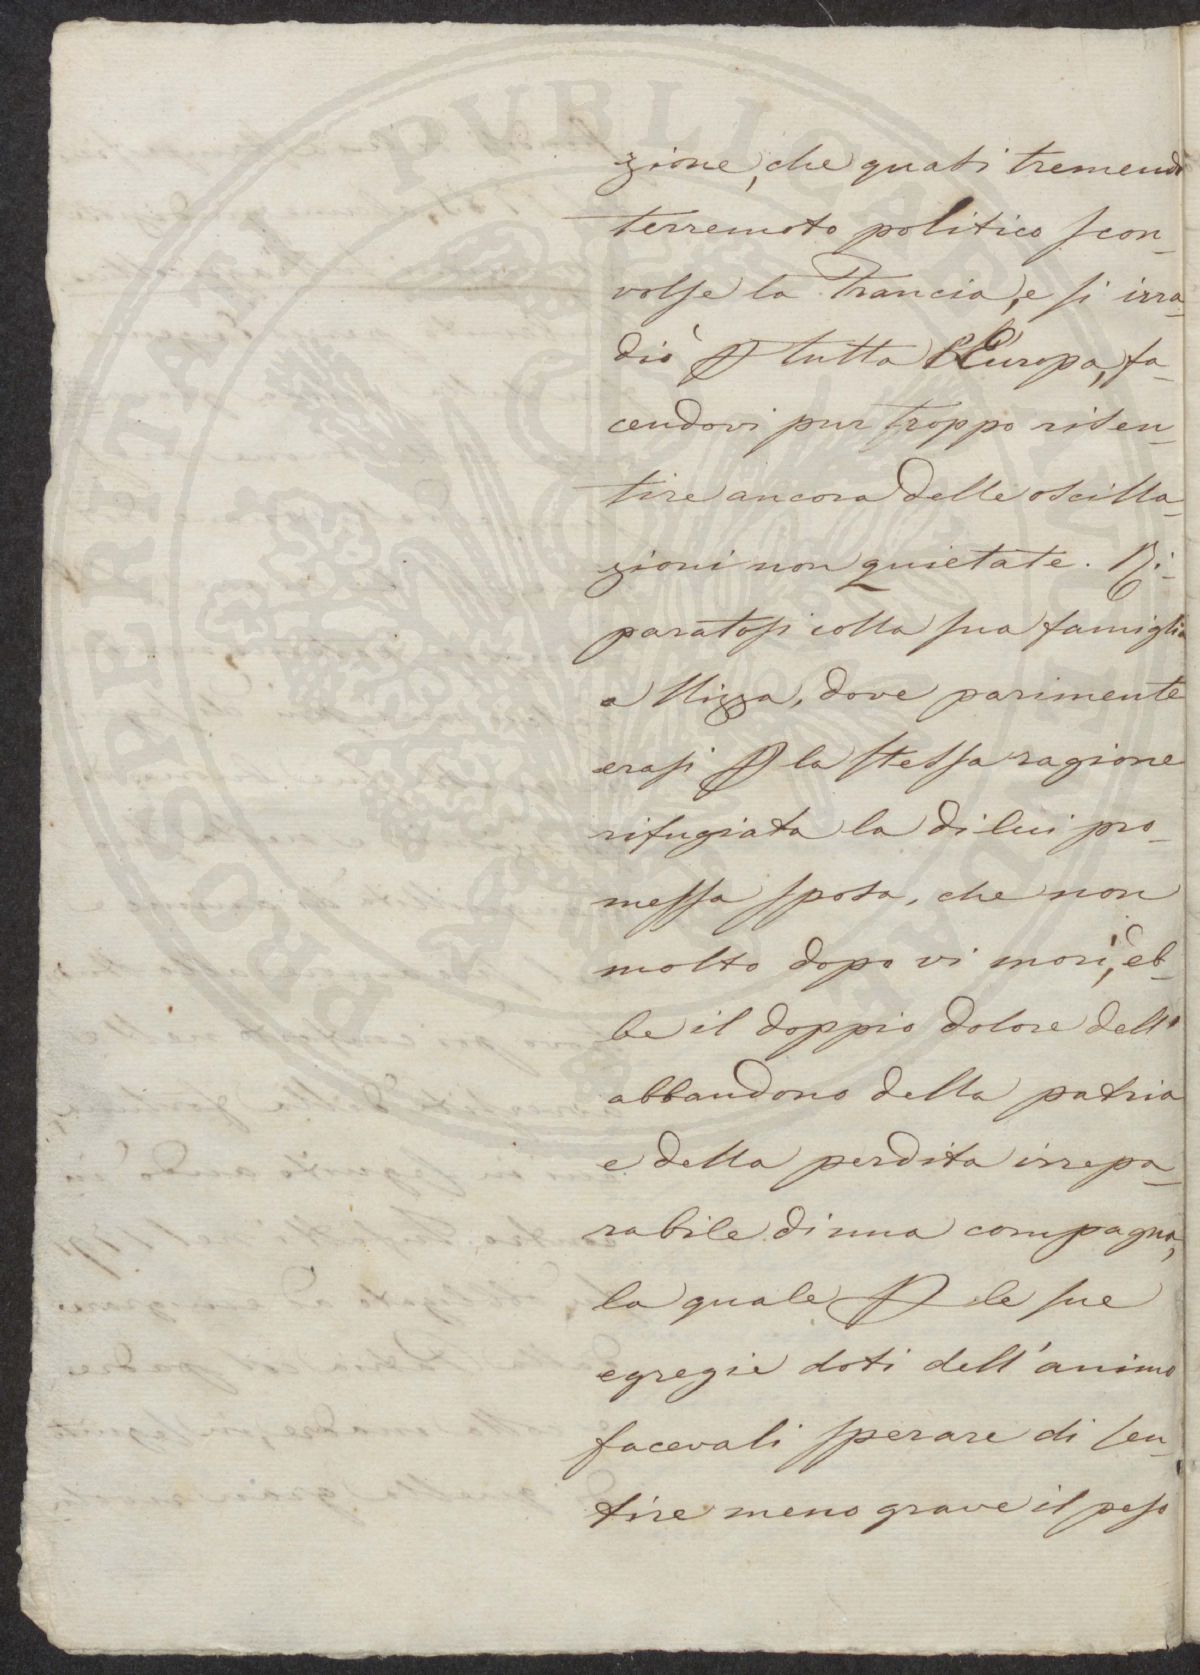 zione, che quasi tremendo
terremoto politico scon-
volse la Francia, e si irra-
diò P tutta l'Europa, fa-
cendovi pur troppo risen-
tire ancora delle oscilla-
zioni non quietate. Ri-
paratosi colla sua famiglia
a Nizza, dove parimente
erasi P la stessa ragione
rifugiata la di lui pro-
messa sposa, che non
molto dopo vi morì, eb-
be il doppio dolore dell'
abbandono della patria
e della perdita irrepa-
rabile di una compagna,
la quale P le sue
egregie doti dell'animo
facevali sperare di sen-
tire meno grave il peso
PROSPERITATI PUBLICAE